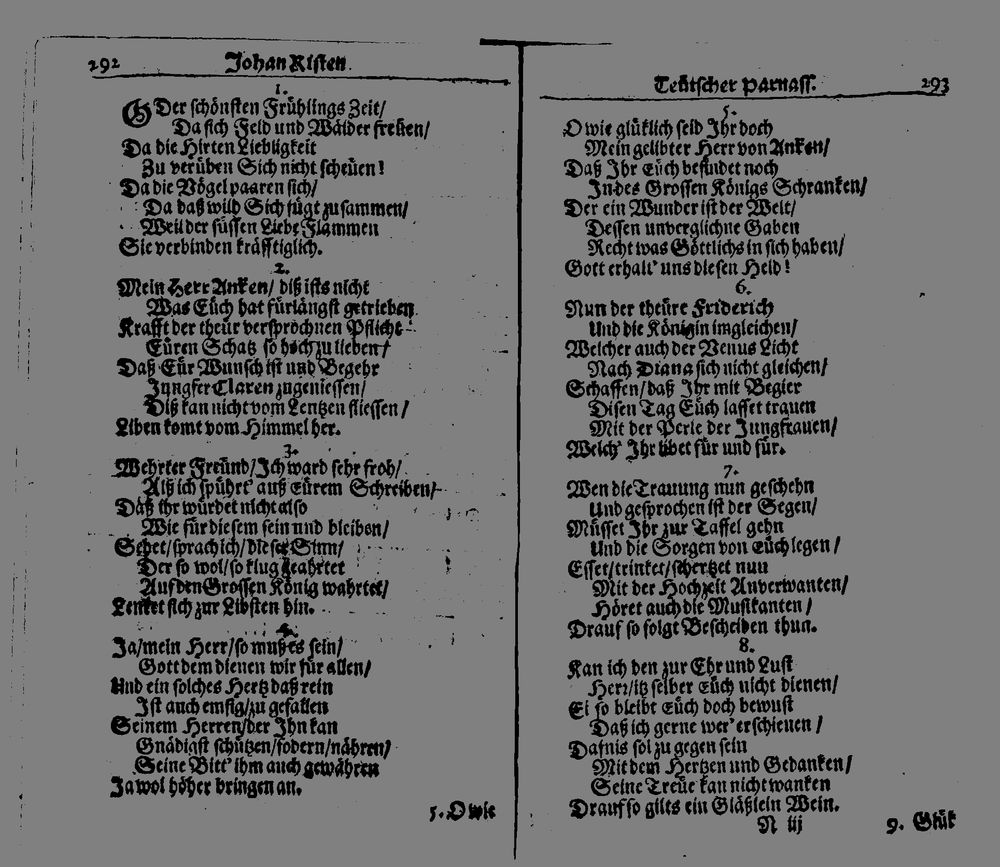 292 Johan Risten.
1.
O Der schönsten Frühlings Zeit/
Da sich Feld und Wälder freüen/
Da die Hirten Liebligkeit
Zu verüben Sich nicht scheüen!
Da die Vögel paaren sich/
Da daß wild Sich fügt zusammen/
Weil der süssen Liebe Flammen
Sie verbinden kräfftiglich.
2.
Mein Herr Anken/ diß ists nicht
Was Eüch hat fürlängst getrieben
Krafft der theür versprochnen Pflicht
Eüren Schatz so hoch zu lieben/
Daß Eür Wunsch ist und Begehr
Jungfer Claren zugeniessen/
Diß kan nicht vom Lentzen fliessen/
Liben komt vom Himmel her.
3.
Wehrter Freünd/ Ich ward sehr froh/
Alß ich spührt' auß Eürem Schreiben/
Daß ihr würdet nicht also
Wie für diesem sein und bleiben/
Sehet/ sprach ich/ dieser Sinn/
Der so wol/ so klug geahrtet
Auf den Grossen König wahrtet/
Lenket sich zur Libsten hin.
4.
Ja/ mein Herr/ so muß es sein/
Gott dem dienen wir für allen/
Und ein solches Hertz daß rein
Ist auch emsig/ zu gefallen
Seinem Herren/ der Ihn kan
Gnädigst schützen/ fodern/ nähren/
Seine Bitt' ihm auch gewähren
Ja wol höher bringen an.
5. O wie
Teütscher Parnass. 293
5.
O wie glüklich seid Ihr doch
Mein gelibter Herr von Anken/
Daß Ihr Eüch befindet noch
In des Grossen Königs Schranken/
Der ein Wunder ist der Welt/
Dessen unverglichne Gaben
Recht was Göttlichs in sich haben/
Gott erhalt' uns diesen Held!
6.
Nun der theüre Friderich
Und die Königin imgleichen/
Welcher auch der Venus Licht
Nach Diana sich nicht gleichen/
Schaffen/ daß Ihr mit Begier
Disen Tag Eüch lasset trauen
Mit der Perle der Jungfrauen/
Welch' Ihr libet für und für.
7.
Wen die Trauung nun geschehn
Und gesprochen ist der Segen/
Müsset Ihr zur Taffel gehn
Und die Sorgen von Eüch legen/
Esset/ trinket/ schertzet nun
Mit der Hochzeit Anverwanten/
Höret auch die Musikanten/
Drauf so folgt Bescheiden thun.
8.
Kan ich den zur Ehr und Lust
Herr/ itz selber Eüch nicht dienen/
Ei so bleibt Eüch doch bewust
Daß ich gerne wer' erschienen/
Dafnis sol zu gegen sein
Mit dem Hertzen und Gedanken/
Seine Treüe kan nicht wanken
Drauf so gilts ein Gläßlein Wein.
N iij 9. Glük